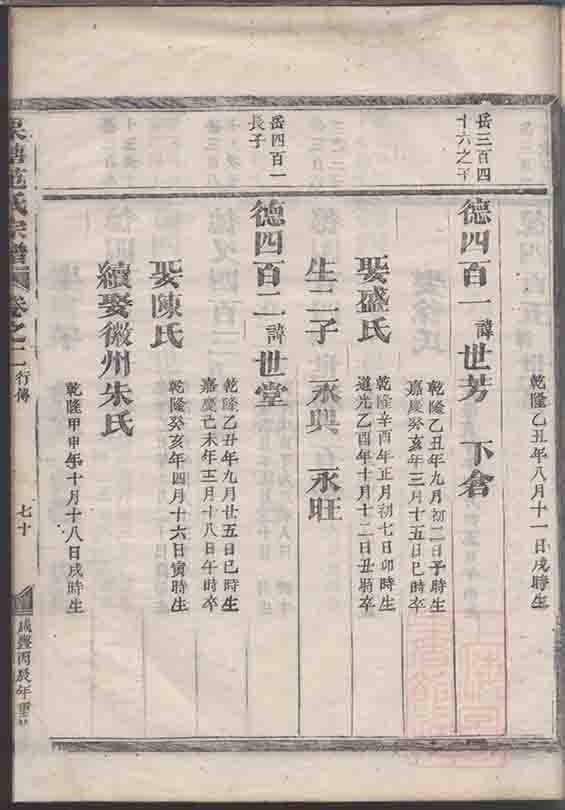 乾隆乙丑年八月十一日戌時生
岳三百四
十六之子
德四百一諱世芳 下倉
乾隆乙丑年九月初二日子時生
嘉慶癸亥年三月十五日巳時卒
娶盛氏
乾隆辛酉年正月初七日卯時生
道光乙酉年十月十二日丑時卒
生二子 永興 永旺
岳四百一
長子
德四百二諱世堂
乾隆乙丑年九月廿五日巳時生
嘉慶己未年三月十八日午時卒
娶陳氏
乾隆癸亥年四月十六日寅時生
續娶徽州朱氏
乾隆甲申年十月十八日戌時生
范氏宗譜 卷之二 行傳 七十 咸豐丙辰年重